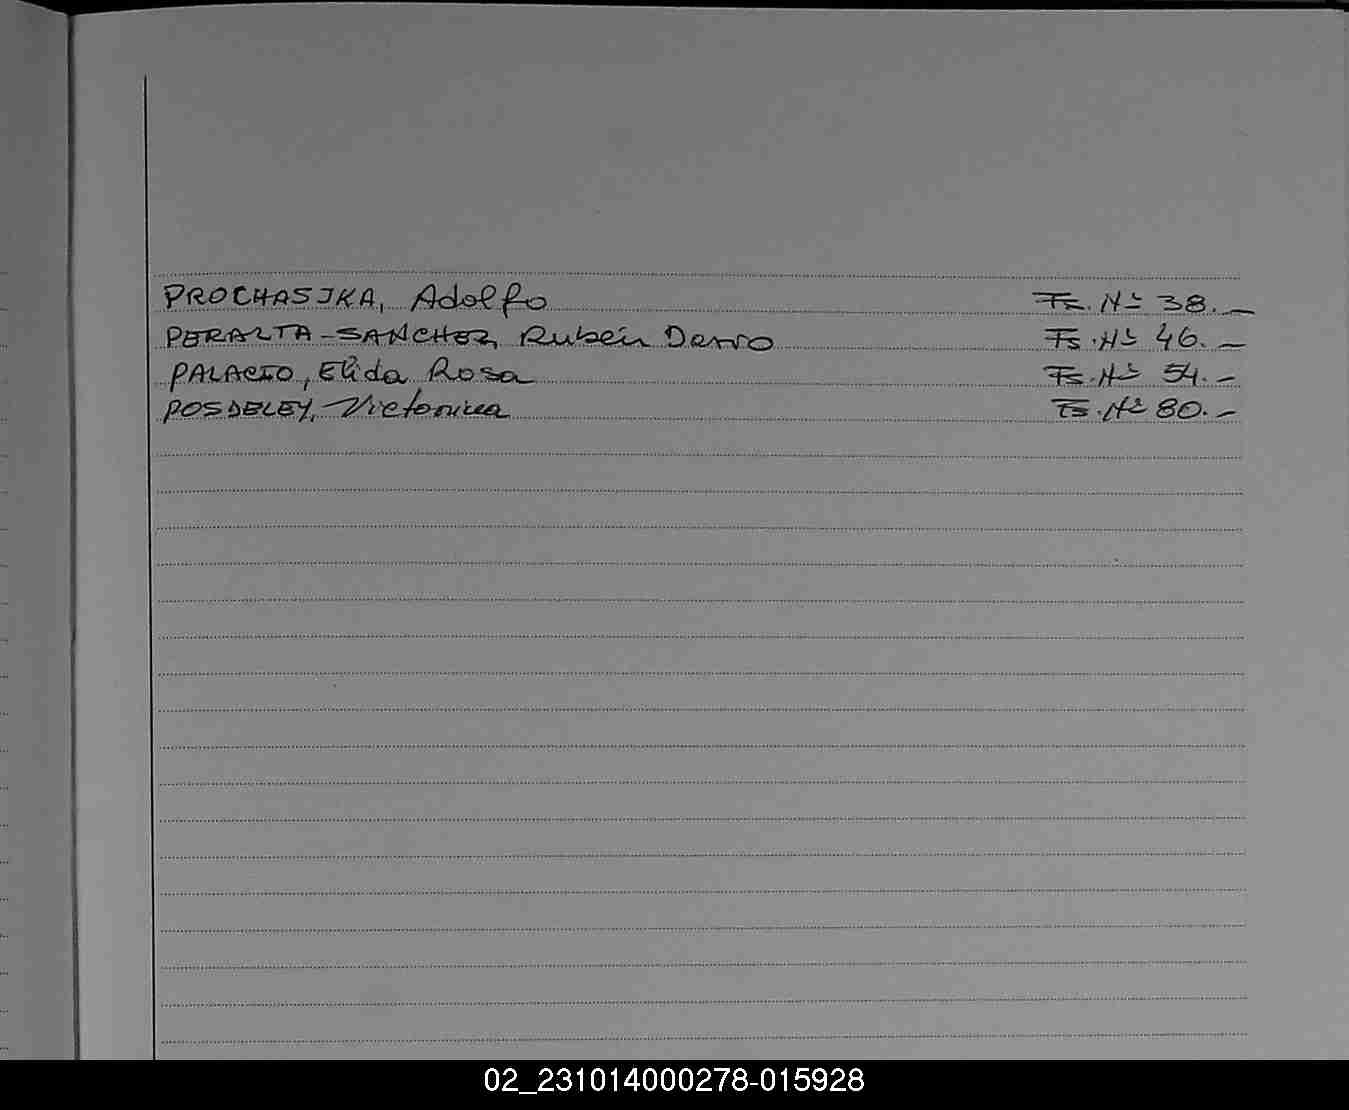 PROCHASJKA, Adolfo Fs. Nº 38.—
PERALTA-SANCHEZ, Rubén Darío Fs. Nº 46.—
PALACIO, Elida Rosa Fs. Nº 54.—
POSDELEY, Victorina Fs. Nº 80.—
02_231014000278-015928